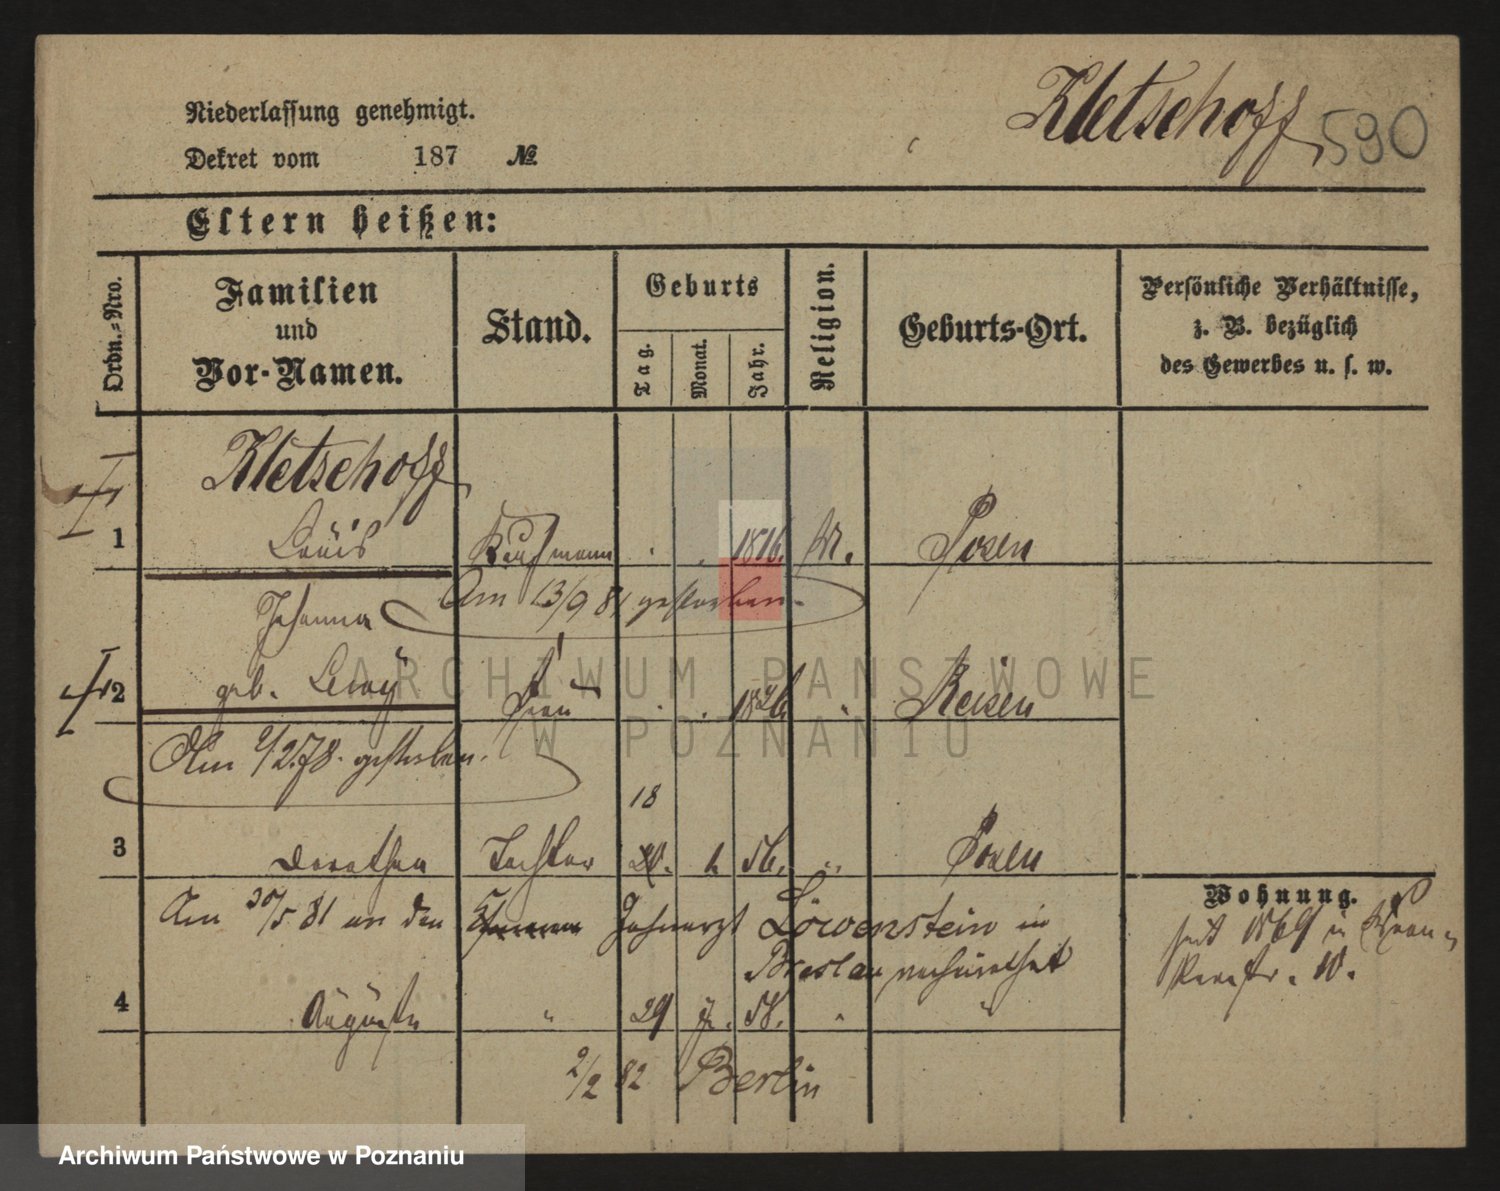 Kletschoff
590
Niederlassung genehmigt.
Dekret vom 187 №
Eltern heißen:
Ordn.-Nro.
Familien
und
Vor-Namen.
Stand.
Geburts
Tag.
Monat.
Jahr.
Religion.
Geburts-Ort.
Persönliche Verhältnisse,
z. B. bezüglich
des Gewerbes u. s. w.
Kletschoff
1 Louis Kaufmann 1816. Posen
Am 13/9 81 gestorben.
Johanna
2 geb. Levy Frau Reisen
Am 2.78. gestorben.
18
3 Dorothea Tochter 56. Posen
Am 30/5 81 an den Zahnarzt Löwenstein in
Breslau verheirathet
4 Auguste " 29 58. " "
2/2 82 Berlin
Wohnung.
seit 1869
10.
ARCHIWUM PAŃSTWOWE
W POZNANIU
Archiwum Państwowe w Poznaniu